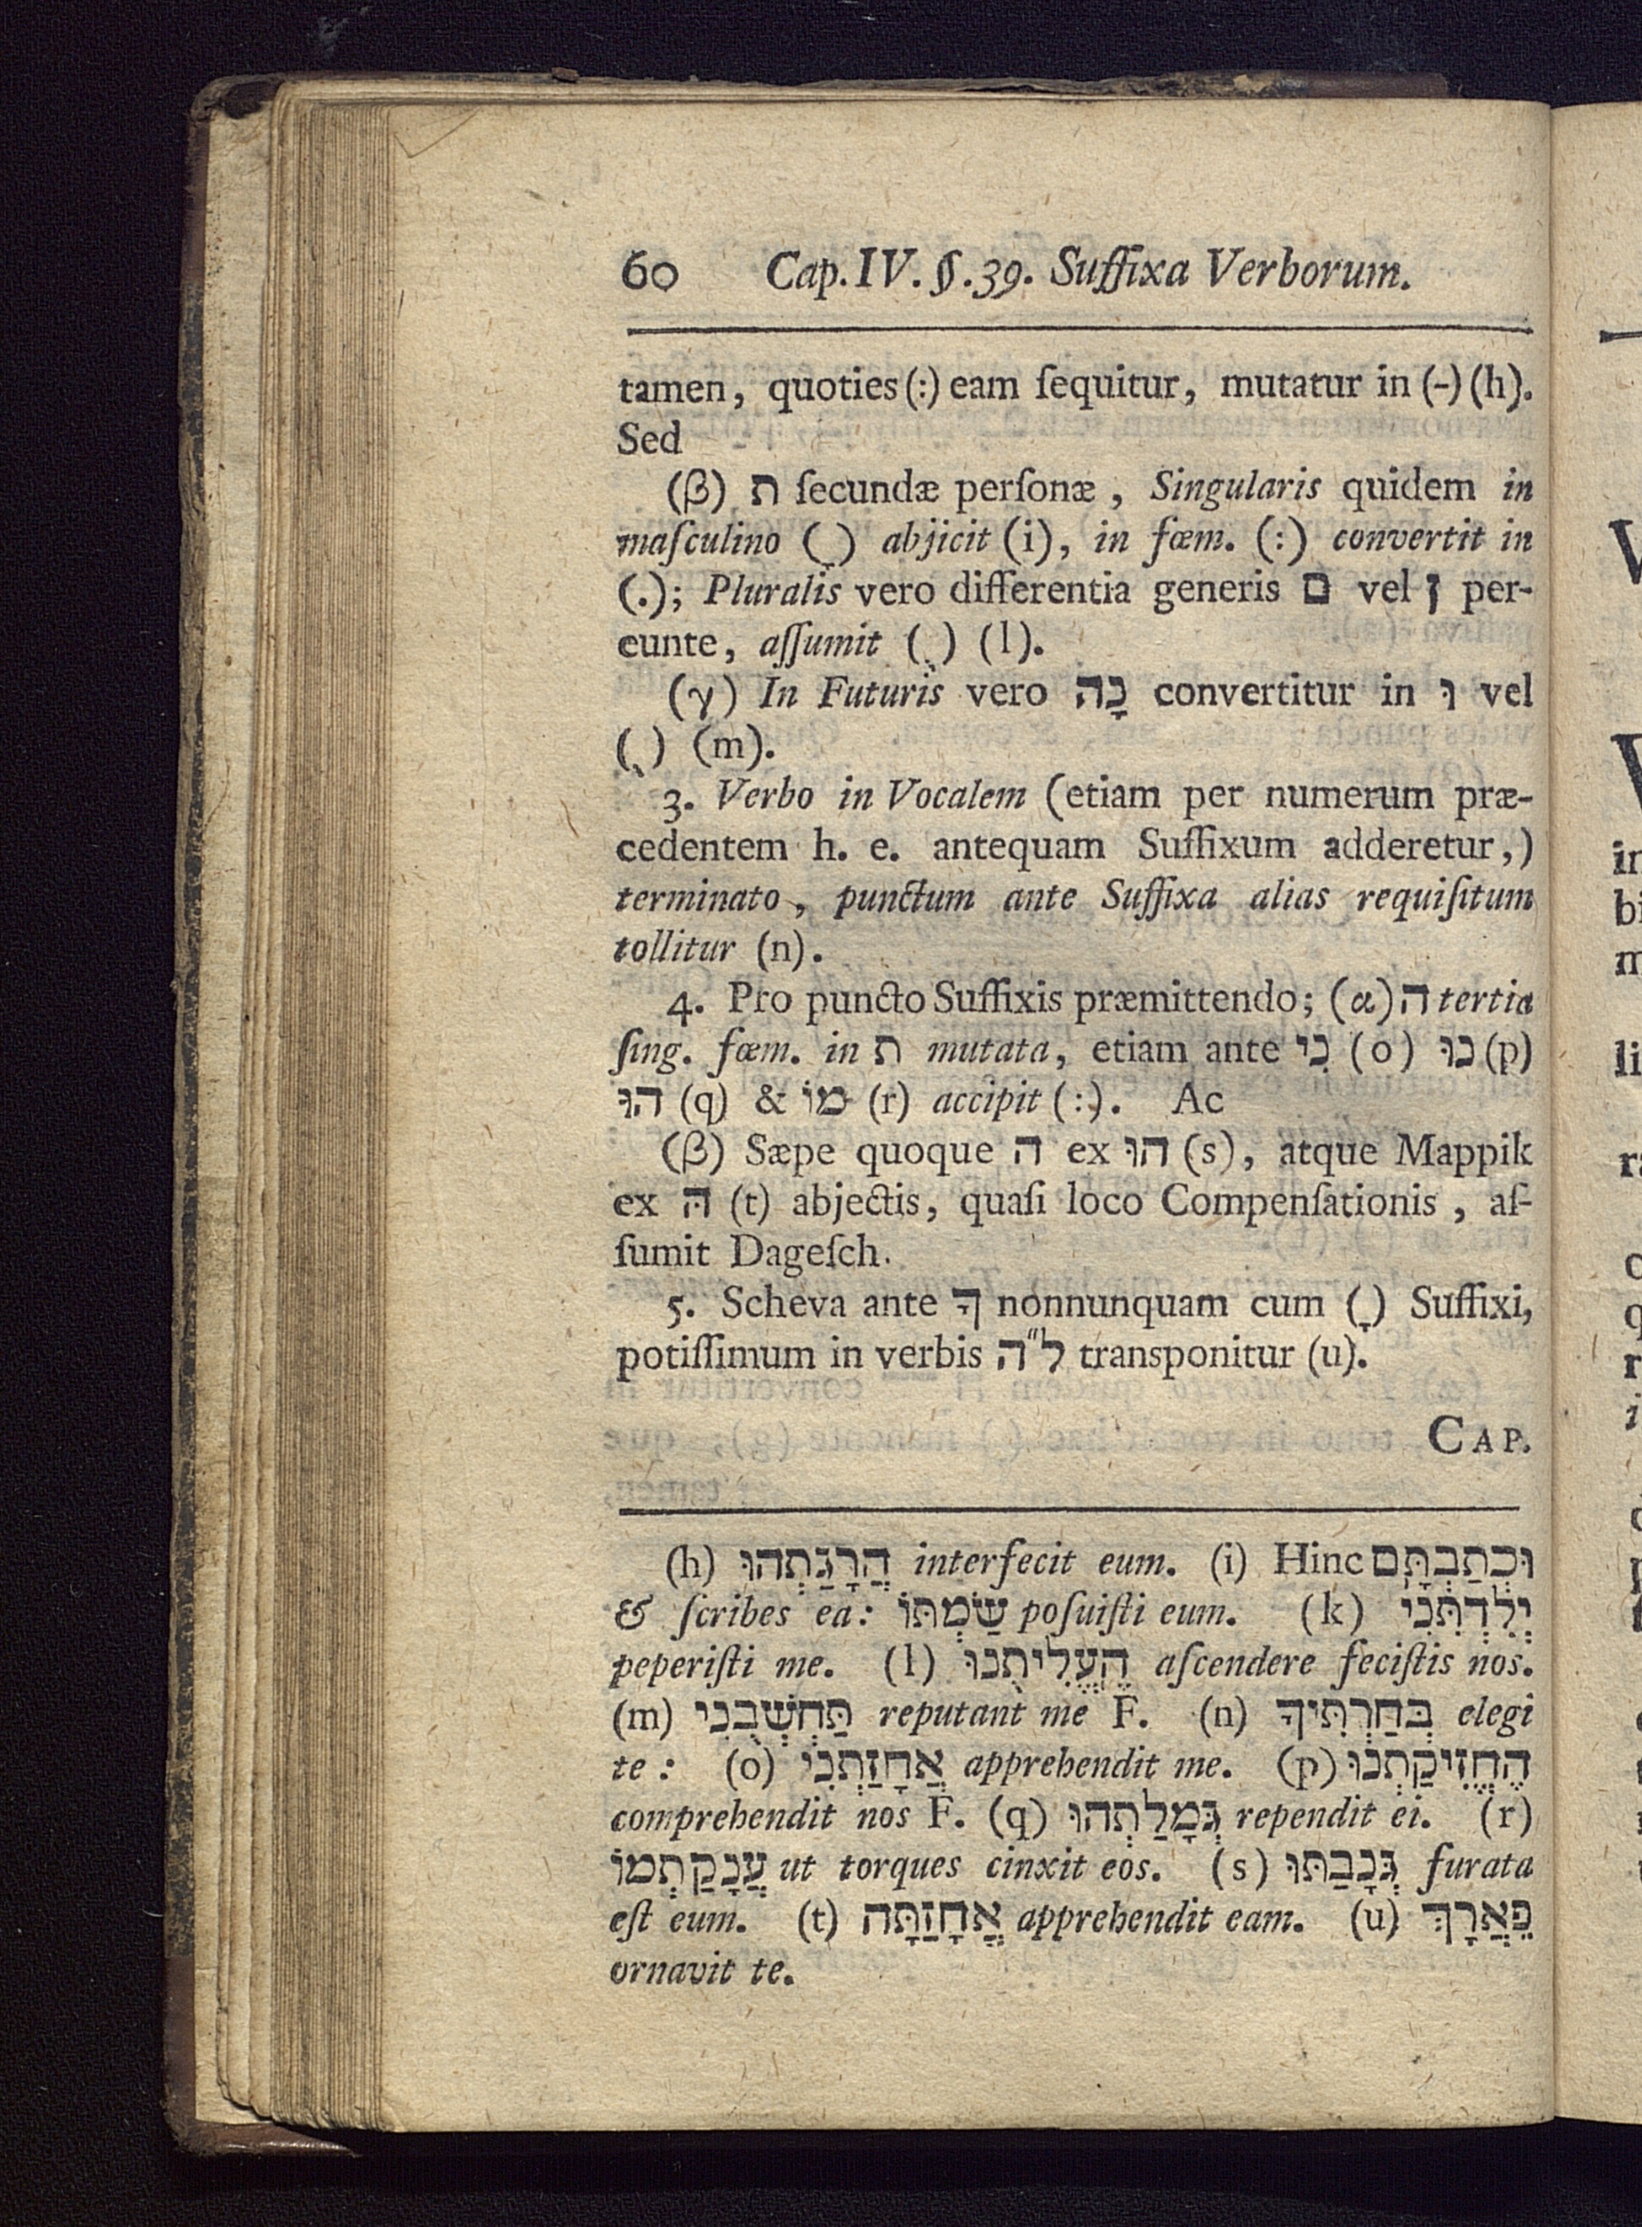 60 Cap. IV. §. 39. Suffixa Verborum.
tamen, quoties (:) eam ſequitur, mutatur in (-) (h).
Sed
(β) ת ſecundæ perſonæ, Singularis quidem in
maſculino (ָ) abjicit (i), in fœm. (:) convertit in
(.); Pluralis vero differentia generis ם vel ן per-
eunte, aſſumit (ֻ) (l).
(γ) In Futuris vero נָה convertitur in וּ vel
(ֻ) (m).
3. Verbo in Vocalem (etiam per numerum præ-
cedentem h. e. antequam Suffixum adderetur,)
terminato, punctum ante Suffixa alias requiſitum
tollitur (n).
4. Pro puncto Suffixis præmittendo; (α) ה tertia
ſing. fœm. in ת mutata, etiam ante נִי (o) נוּ (p)
הוּ (q) & מוֹ (r) accipit (:). Ac
(β) Sæpe quoque ה ex הוּ (s), atque Mappik
ex הּ (t) abjectis, quaſi loco Compenſationis, aſ-
ſumit Dageſch.
5. Scheva ante ךָ nonnunquam cum (ָ) Suffixi,
potiſſimum in verbis ל״ה transponitur (u).
CAP.
(h) הֲרָגַתְהוּ interfecit eum. (i) Hinc וּכְתַבְתָּם
& ſcribes ea: שַׂמְתּוֹ poſuiſti eum. (k) יְלִדְתִּנִי
peperiſti me. (l) הֶעֱלִיתֻנוּ aſcendere feciſtis nos.
(m) תַּחְשְׁבֻנִי reputant me F. (n) בְּחַרְתִּיךָ elegi
te: (o) אֲחָזַתְנִי apprehendit me. (p) הֶחֱזִיקַתְנוּ
comprehendit nos F. (q) גְּמָלַתְהוּ rependit ei. (r)
עֲנָקַתְמוֹ ut torques cinxit eos. (s) גְּנָבַתּוּ furata
eſt eum. (t) אֲחָזַתָּה apprehendit eam. (u) פֵּאֲרָךְ
ornavit te.